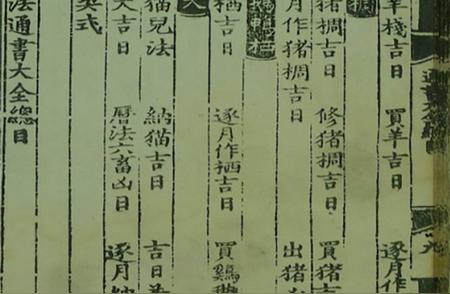 通書大
羊棧吉日 買羊吉日 逐月作
椆
猪椆吉日 修猪椆吉日 買猪吉
月作猪椆吉日 出猪
鵝鴨栖
栖吉日 逐月作栖吉日 買鷄
猫兒法 納猫吉日 吉日
犬吉日 曆法六畜凶日 逐月
式
法通書大全總目